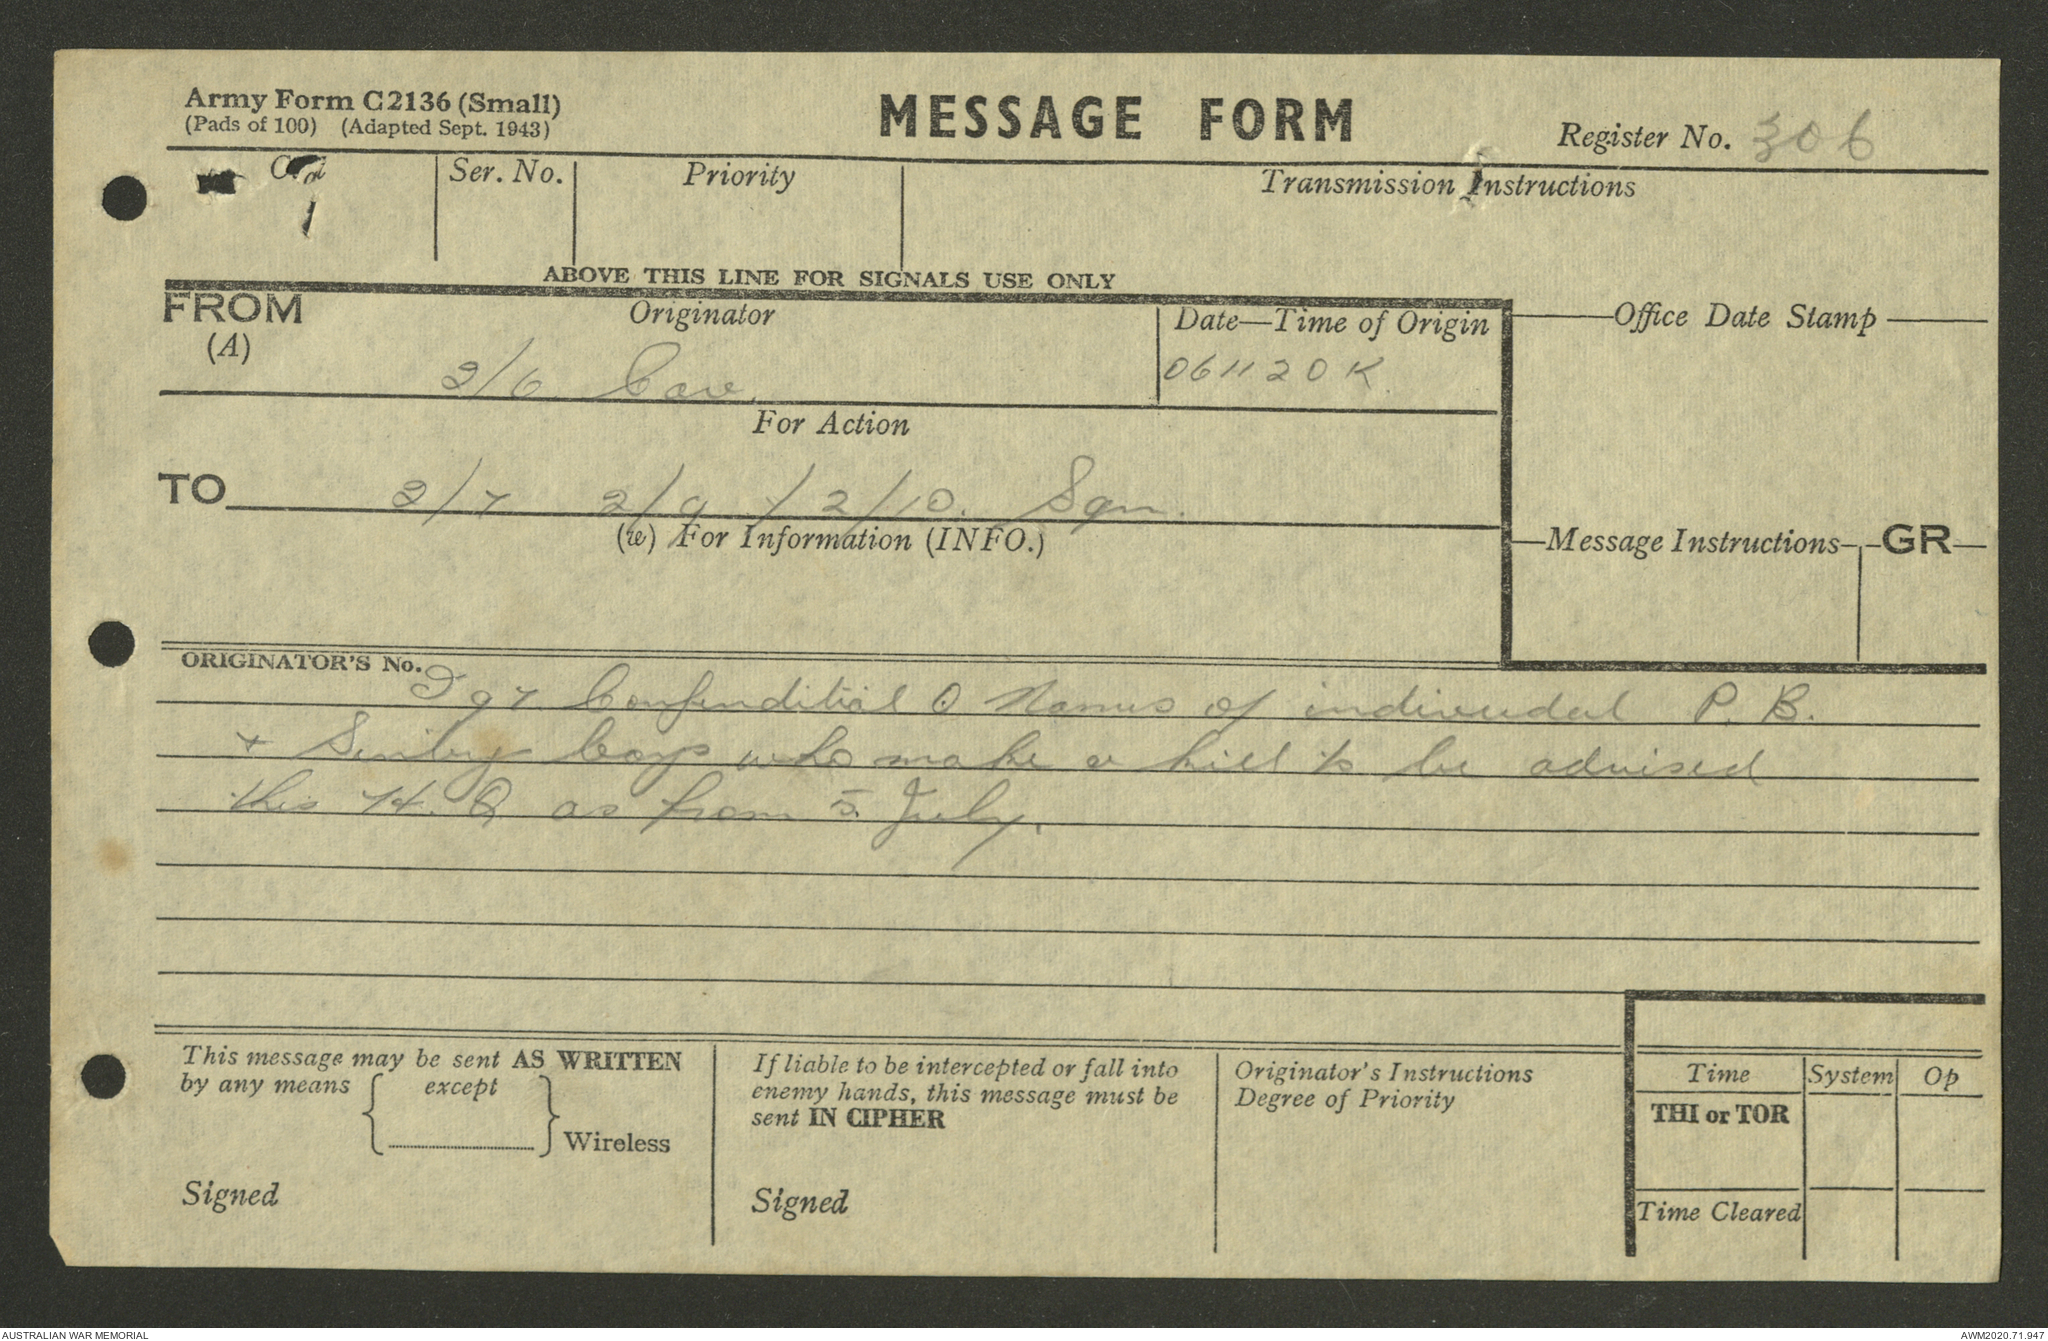 Army Form C2136 (Small)
(Pads of 100) (Adapted Sept. 1943)
MESSAGE FORM
Register No. 306
Ser. No.
Priority
Transmission Instructions
ABOVE THIS LINE FOR SIGNALS USE ONLY
FROM
(A)
Originator
2/6 Cav.
Date—Time of Origin
061120K
Office Date Stamp
For Action
TO
2/7 2/9 / 2/10. Sqn.
(w) For Information (INFO.)
Message Instructions
GR
ORIGINATOR'S No.
I97 Confinditial O Names of individual P.B.
+ boys who make a kill to be advised
this H.Q as from 5 July.
This message may be sent AS WRITTEN
by any means except
Wireless
Signed
If liable to be intercepted or fall into
enemy hands, this message must be
sent IN CIPHER
Signed
Originator's Instructions
Degree of Priority
Time System Op
THI or TOR
Time Cleared
AUSTRALIAN WAR MEMORIAL
AWM2020.71.947